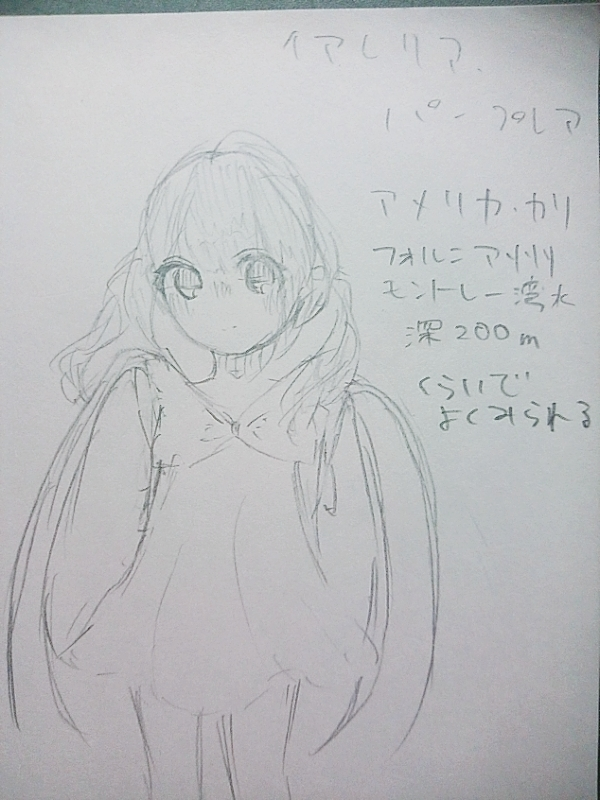 イアレリア.
パープレア
アメリカ・カリ
フォルニア州
モントレー湾水
深200m
くらいで
よくみられる